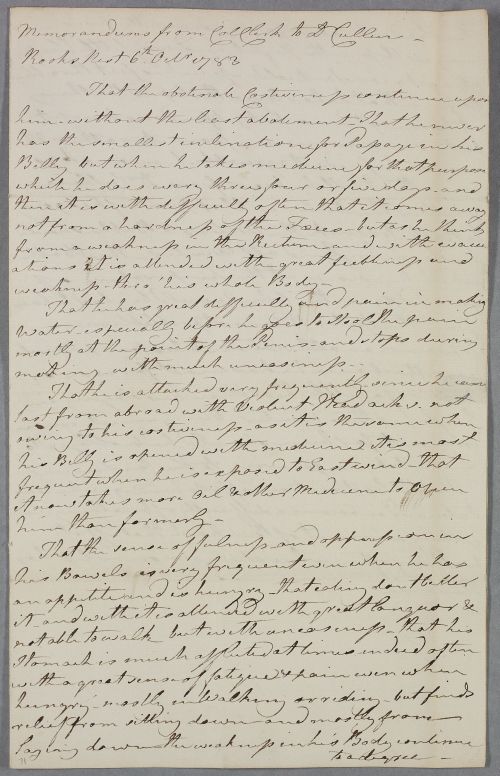 Memorandums from Col Clerk to Dr Cullen
Rocks Rest 6th Octr 1783
That the obstinate Costiveness continues upon
him without the least abatement That he never
has the smallest inclination for Passage in his
Belly but when he takes medicine for that purpose
which he does every three four or five days - and
then it is with difficulty often that it comes away
not from a hardness of the Fæces - but as he thinks
from a weakness in the Rectum - and with evacu
ations It is attended with great feebleness and
weakness thro' his whole Body -
That he has great difficulty and pain in making
Water especially before he goes to Stool The pain
mostly at the point of the Penis - and stops during
making with much uneasiness -
That he is attacked very frequently since he came
last from abroad with Violent Headachs - not
owing to his costiveness - as it is the same when
his Belly is opened with medicine it is most
frequent when he is exposed to East wind - That
it now takes more Oil & other Medicine to Open
him than formerly -
That the sense of fulness and oppression in
his Bowels is very frequent even when he has
an appetite and is hungry - that eating dont better
it and with it is attended with great languor &
not able to walk but with uneasiness - That his
Stomach is much afflicted at times indeed often
with a great sense of fatigue & pain even when
hungry - mostly in Walking or riding - but finds
relief from sitting down - and mostly from
laying down - the weakness in his Body continues
to a degree -